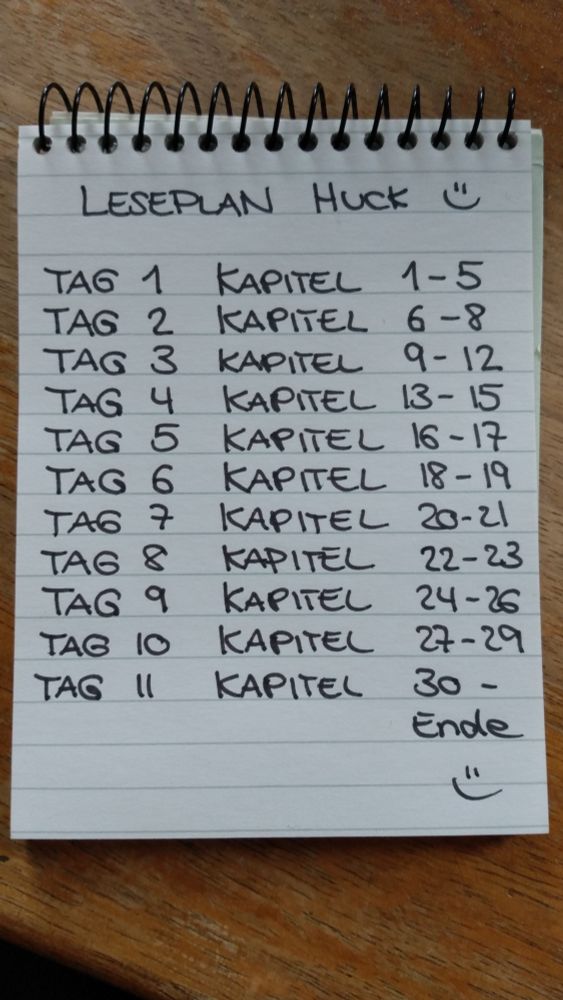 LESEPLAN HUCK
TAG 1 KAPITEL 1-5
TAG 2 KAPITEL 6-8
TAG 3 KAPITEL 9-12
TAG 4 KAPITEL 13-15
TAG 5 KAPITEL 16-17
TAG 6 KAPITEL 18-19
TAG 7 KAPITEL 20-21
TAG 8 KAPITEL 22-23
TAG 9 KAPITEL 24-26
TAG 10 KAPITEL 27-29
TAG 11 KAPITEL 30 -
Ende